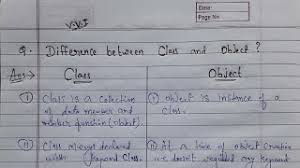 Date:
Page No
V.V.I
Q. Difference between Class and Object ?
Ans → Class
Object
(i) Class is a collection of data member and member function (object).
(i) Object is instance of a class.
(ii) Class always declared keyword class.
(ii) At a time of object creation we doesn't required any keyword